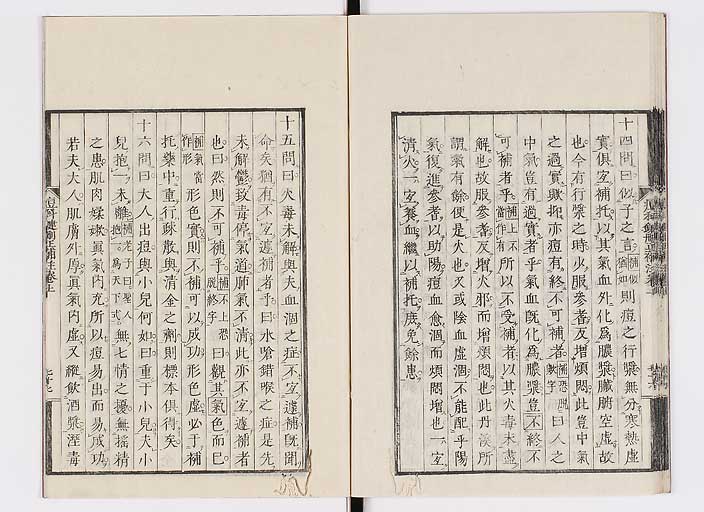 十四問曰似子之言補似猶如則痘之行漿無分寒熱虛
實俱宜補托以其氣血外化爲膿漿臟腑空虛故
也今有行漿之時少服參者反增煩悶此豈中氣
之過實歟抑亦痘有終不可補者歟補恐脫字曰人之
中氣豈有過實者乎氣血既化爲膿漿豈不終不
可補者乎補上不當作有所以不受補者以其火毒未盡
解也故服參者反增火邪而增煩悶也此丹溪所
謂氣有餘便是火也又或陰血虛涸不能配乎陽
氣復進參者以助陽痘血愈涸而煩悶增也一宜
清火一宜養血繼以補托庶免餘患
十五問曰火毒未解與夫血涸之症不宜遽補旣聞
命矣猶有不宜遽補者乎曰水嗆錯喉之症是先
未解鬱致毒停氣道肺氣不清此亦不宜遽補者
也曰然則不可補乎補不上恐脫終字曰觀其氣色而已
補氣當作形形色實則不補可以成功形色虛必于補
托藥中重行疎散與清金之劑則標本俱得矣
十六問曰大人出痘與小兒何如曰重于小兒夫小
兒抱一未離補老子曰聖人抱一爲天下式無七情之擾無搖精
之患肌肉媃嫰眞氣內充所以痘易出而易成功
若夫大人肌膚外厚眞氣內虛又縱飲酒漿溼毒